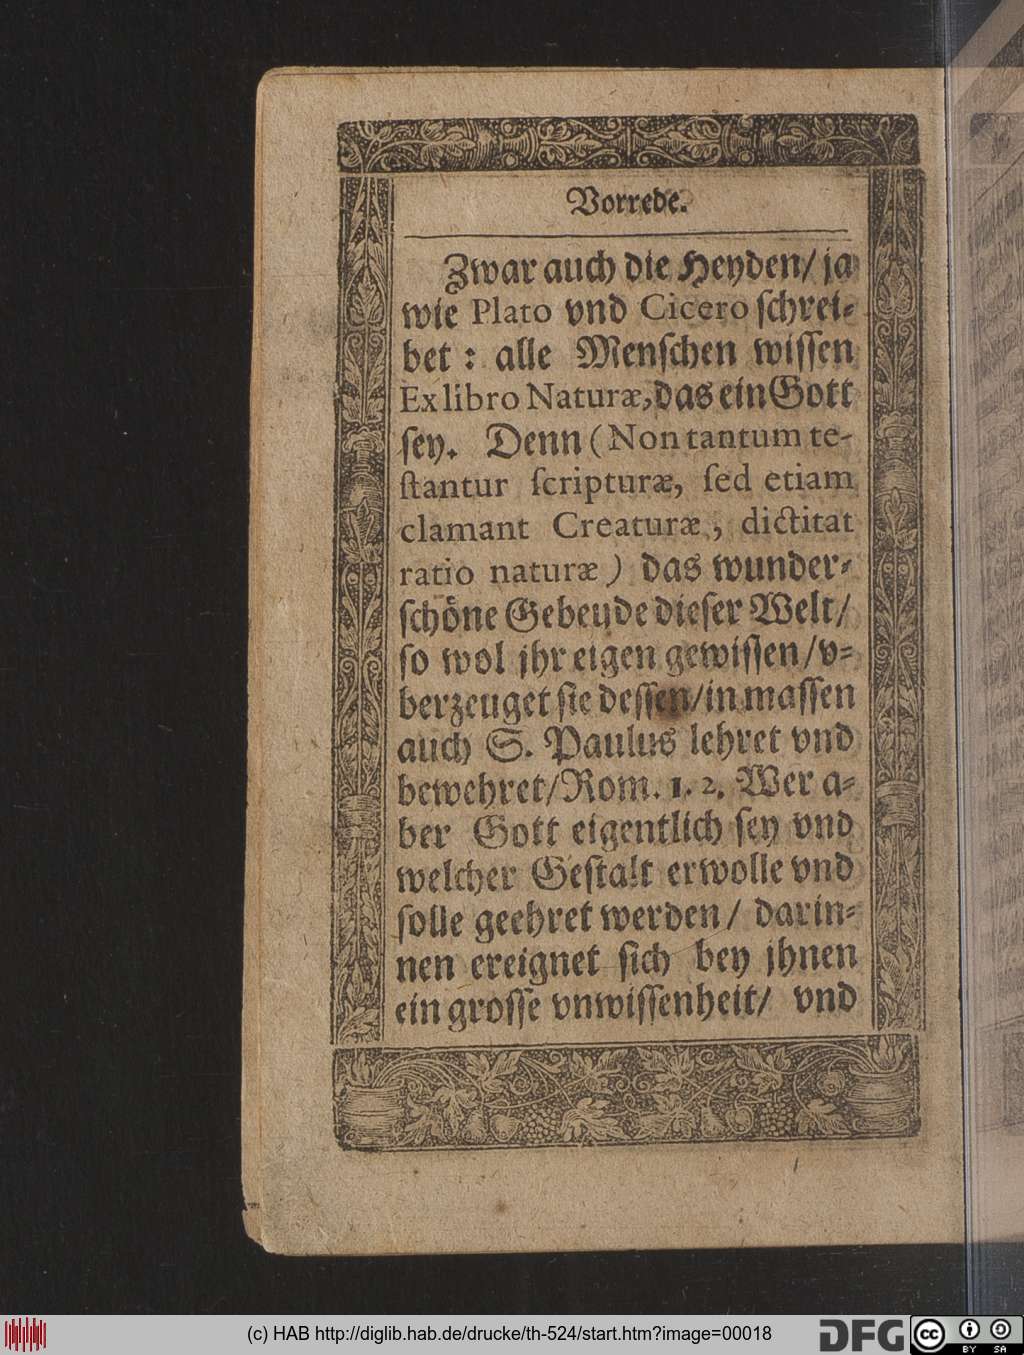 Vorrede.
Zwar auch die Heyden/ ja
wie Plato vnd Cicero ſchrei⸗
bet : alle Menſchen wiſſen
Ex libro Naturæ, das ein Gott
ſey. Denn (Non tantum te-
ſtantur ſcripturæ, ſed etiam
clamant Creaturæ, dictitat
ratio naturæ) das wunder⸗
ſchöne Gebeude dieſer Welt/
ſo wol jhr eigen gewiſſen/ v⸗
berzeuget ſie deſſen/ in maſſen
auch S. Paulus lehret vnd
bewehret/ Rom. 1. 2. Wer a⸗
ber Gott eigentlich ſey vnd
welcher Geſtalt er wolle vnd
ſolle geehret werden/ darin⸗
nen ereignet ſich bey jhnen
ein groſſe vnwiſſenheit/ vnd
(c) HAB http://diglib.hab.de/drucke/th-524/start.htm?image=00018
DFG
cc BY SA